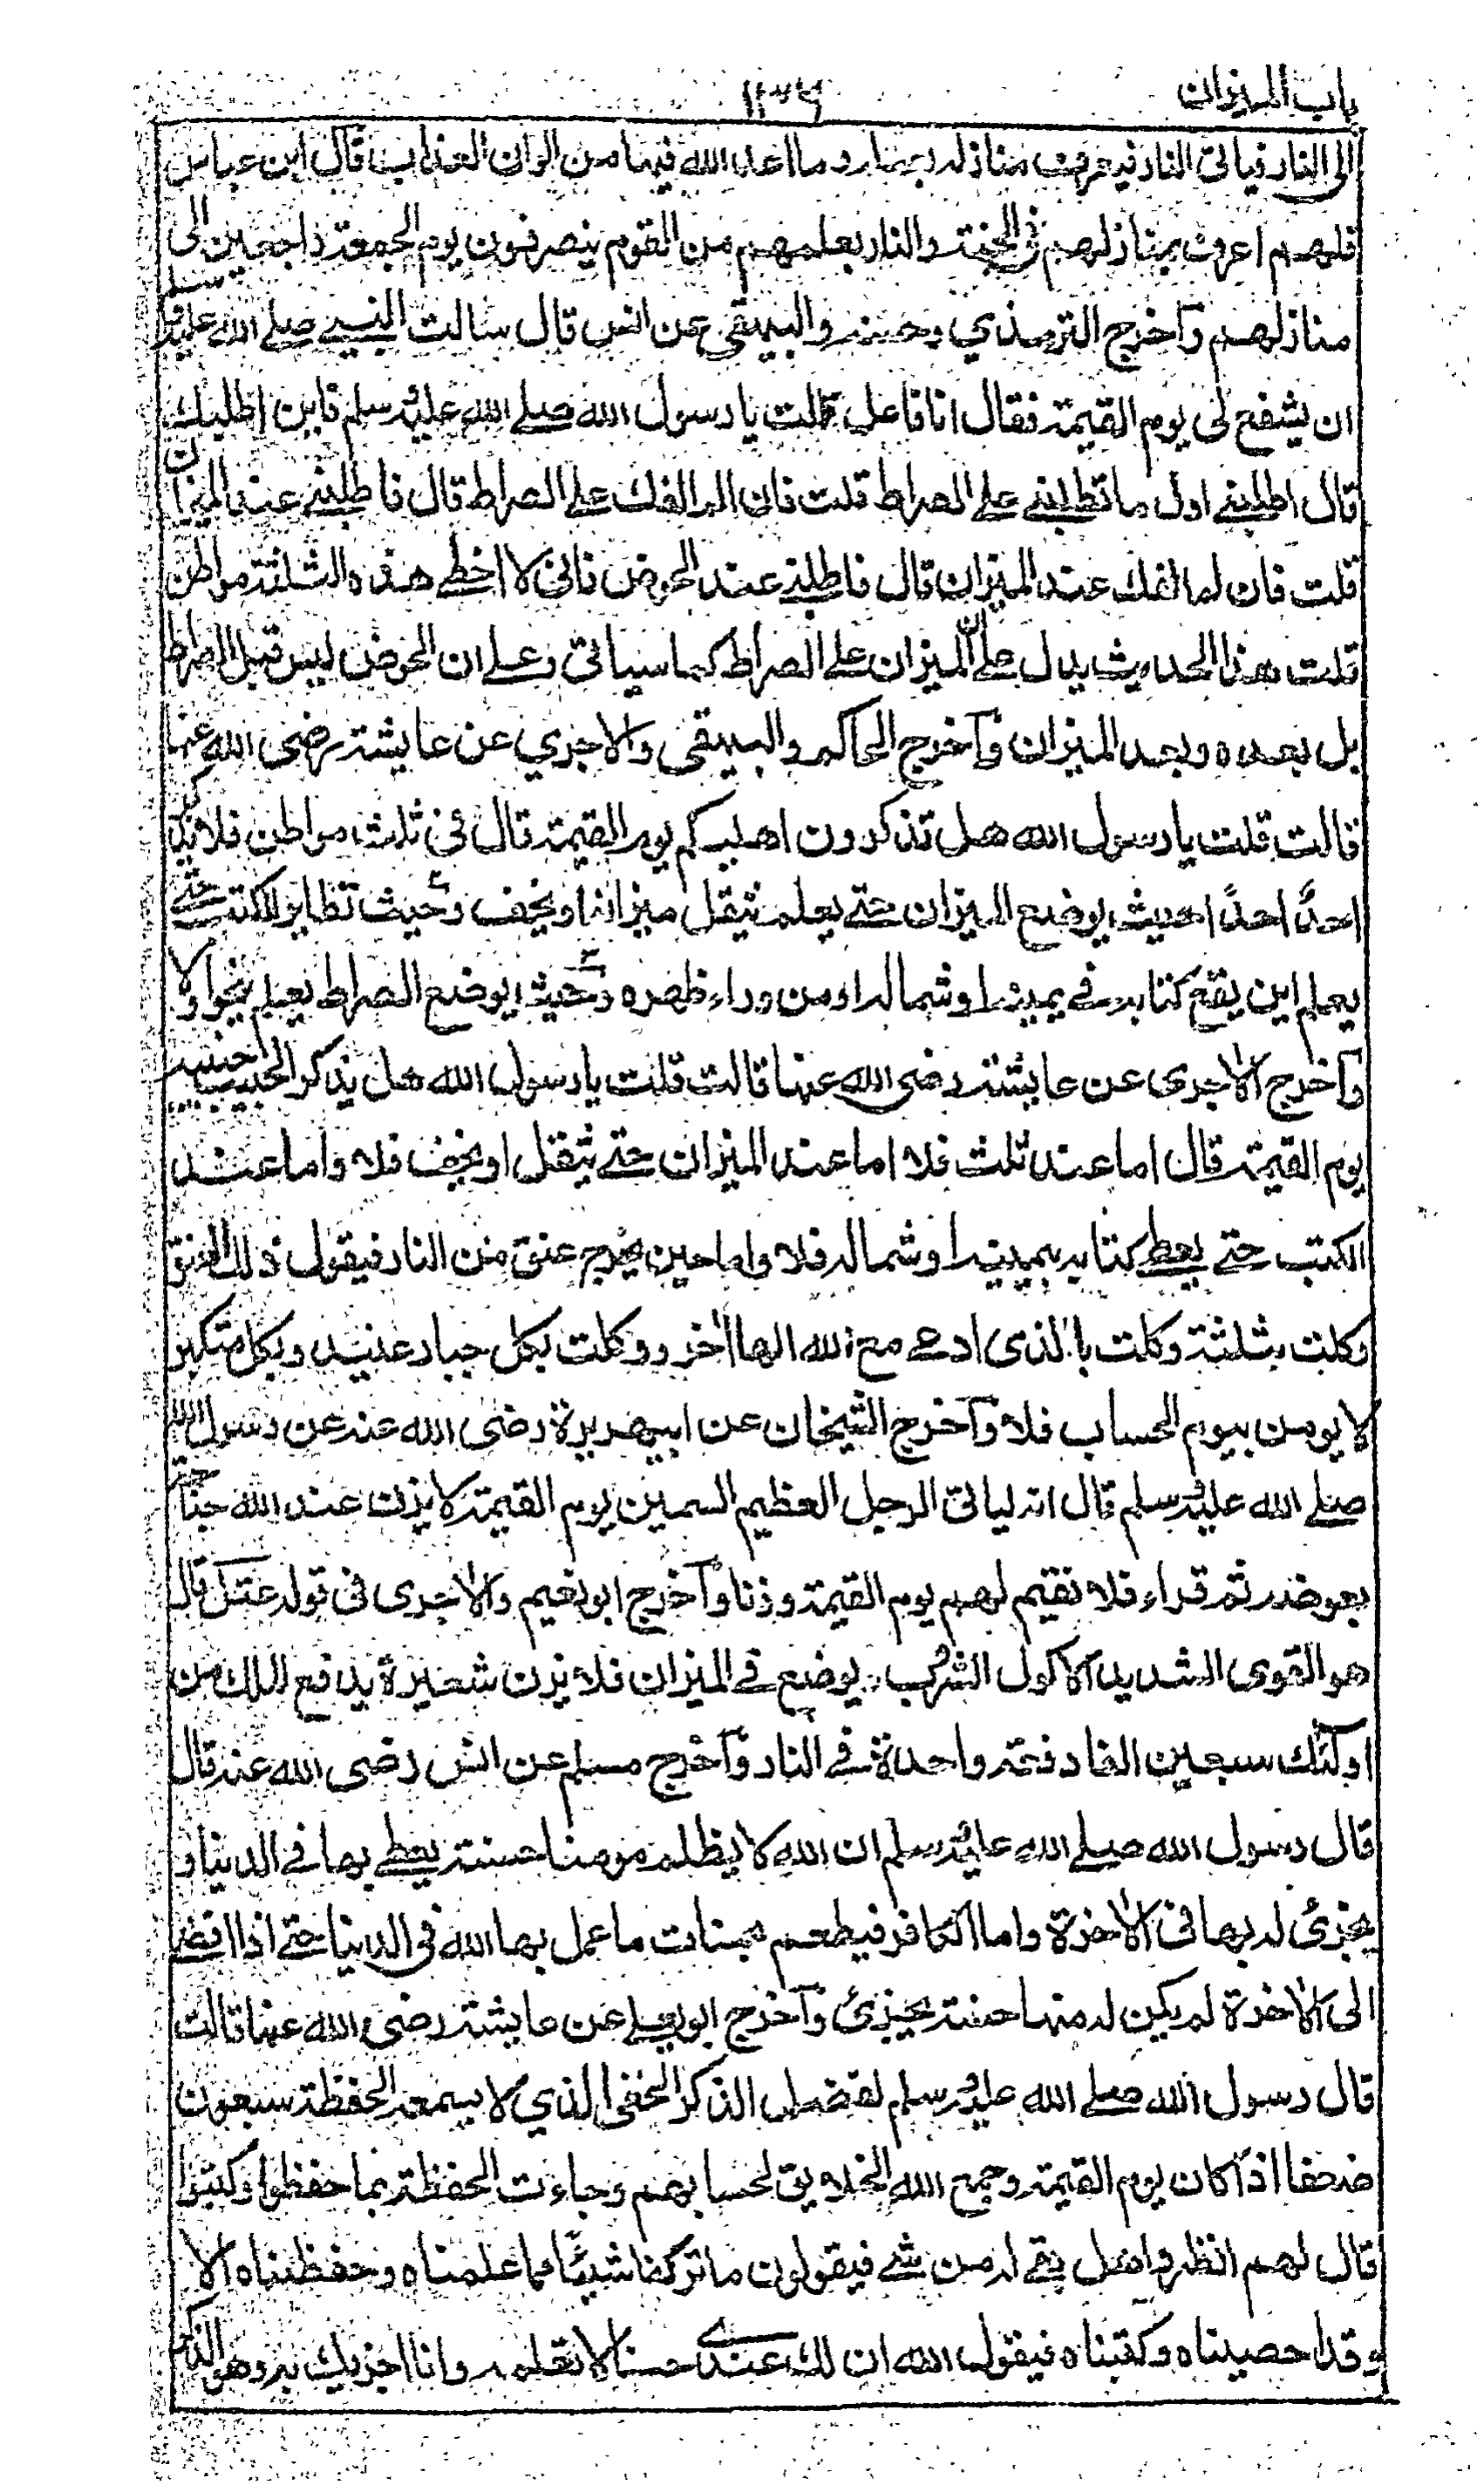 باب الميزان
الى النار فياتى النار فيعرف منازله بها وما اعد الله فيها من الوان العذاب قال ابن عباس
فلهم اعرف بمنازلهم فى الجنة والنار بعلمهم من القوم ينصرفون يوم الجمعة راجعين الى
منازلهم وآخرج الترمذي وحسنه والبيهقى عن انس قال سالت النبي صلى الله عليه وسلم
ان يشفع لى يوم القيمة فقال انا فاعل قلت يا رسول الله صلى الله عليه وسلم فاين اطلبك
قال اطلبنى اول ما تطلبنى على الصراط قلت فان لم القك على الصراط قال فاطلبنى عند الميزان
قلت فان لم القك عند الميزان قال فاطلبنى عند الحوض فانى لا اخطى هذه الثلثة مواطن
قلت هذا الحديث يدل على ان الميزان على الصراط كما سياتى وعلى ان الحوض ليس قبل الصراط
بل بعده وبعد الميزان وآخرج الحاكم والبيهقى والاجري عن عايشة رضى الله عنها
قالت قلت يا رسول الله هل تذكرون اهليكم يوم القيمة قال فى ثلث مواطن فلا يذكر
احدٌ احدًا حيث يوضع الميزان حتى يعلم يثقل ميزانه او يخف وحيث تطاير الكتب حتى
يعلم اين يقع كتابه فى يمينه او شماله او من وراء ظهره وحيث يوضع الصراط يعلم ينجو او لا
وآخرج الاجرى عن عايشة رضى الله عنها قالت قلت يا رسول الله هل يذكر الحبيب حبيبه
يوم القيمة قال اما عند ثلث فلا اما عند الميزان حتى يثقل او يخف فلا واما عند
الكتب حتى يعطى كتابه بيمينه او شماله فلا واما حين يخرج عنق من النار فيقول ذلك العنق
وكلت بثلثة وكلت بالذى ادعى مع الله الها اخر ووكلت بكل جبار عنيد وبكل متكبر
لا يومن بيوم الحساب فلا وآخرج الشيخان عن ابيهريرة رضى الله عنه عن رسول الله
صلى الله عليه وسلم قال انه لياتى الرجل العظيم السمين يوم القيمة لا يزن عند الله جناح
بعوضة ثم قراء فلا نقيم لهم يوم القيمة وزنا وآخرج ابو نعيم والاجرى فى قوله عتل قال
هو القوى الشديد الاكول الشروب يوضع فى الميزان فلا يزن شعيرة يدفع الملك من
اولٓئك سبعين الفا دفعة واحدة فى النار وآخرج مسلم عن انس رضى الله عنه قال
قال رسول الله صلى الله عليه وسلم ان الله لا يظلم مومنا حسنة يعطى بها فى الدنيا و
يجزئ له بها فى الاخرة واما الكافر فيطعم بحسنات ما عمل بها الله فى الدنيا حتى اذا افضى
الى الاخرة لم يكن له منها حسنة يجزئ وآخرج ابو يعلى عن عايشة رضى الله عنها قالت
قال رسول الله صلى الله عليه وسلم لفضل الذكر الخفى الذي لا يسمعه الحفظة سبعون
ضعفا اذا كان يوم القيمة وجمع الله الخلايق لحسابهم وجاءت الحفظة بما حفظوا وكتبوا
قال لهم انظروا هل بقى له من شى فيقولون ما تركنا شيئًا مما علمناه وحفظناه الا
وقد احصيناه وكتبناه فيقول الله ان لك عندى حسنا لا تعلمه وانا اجزيك به وهو الذكر